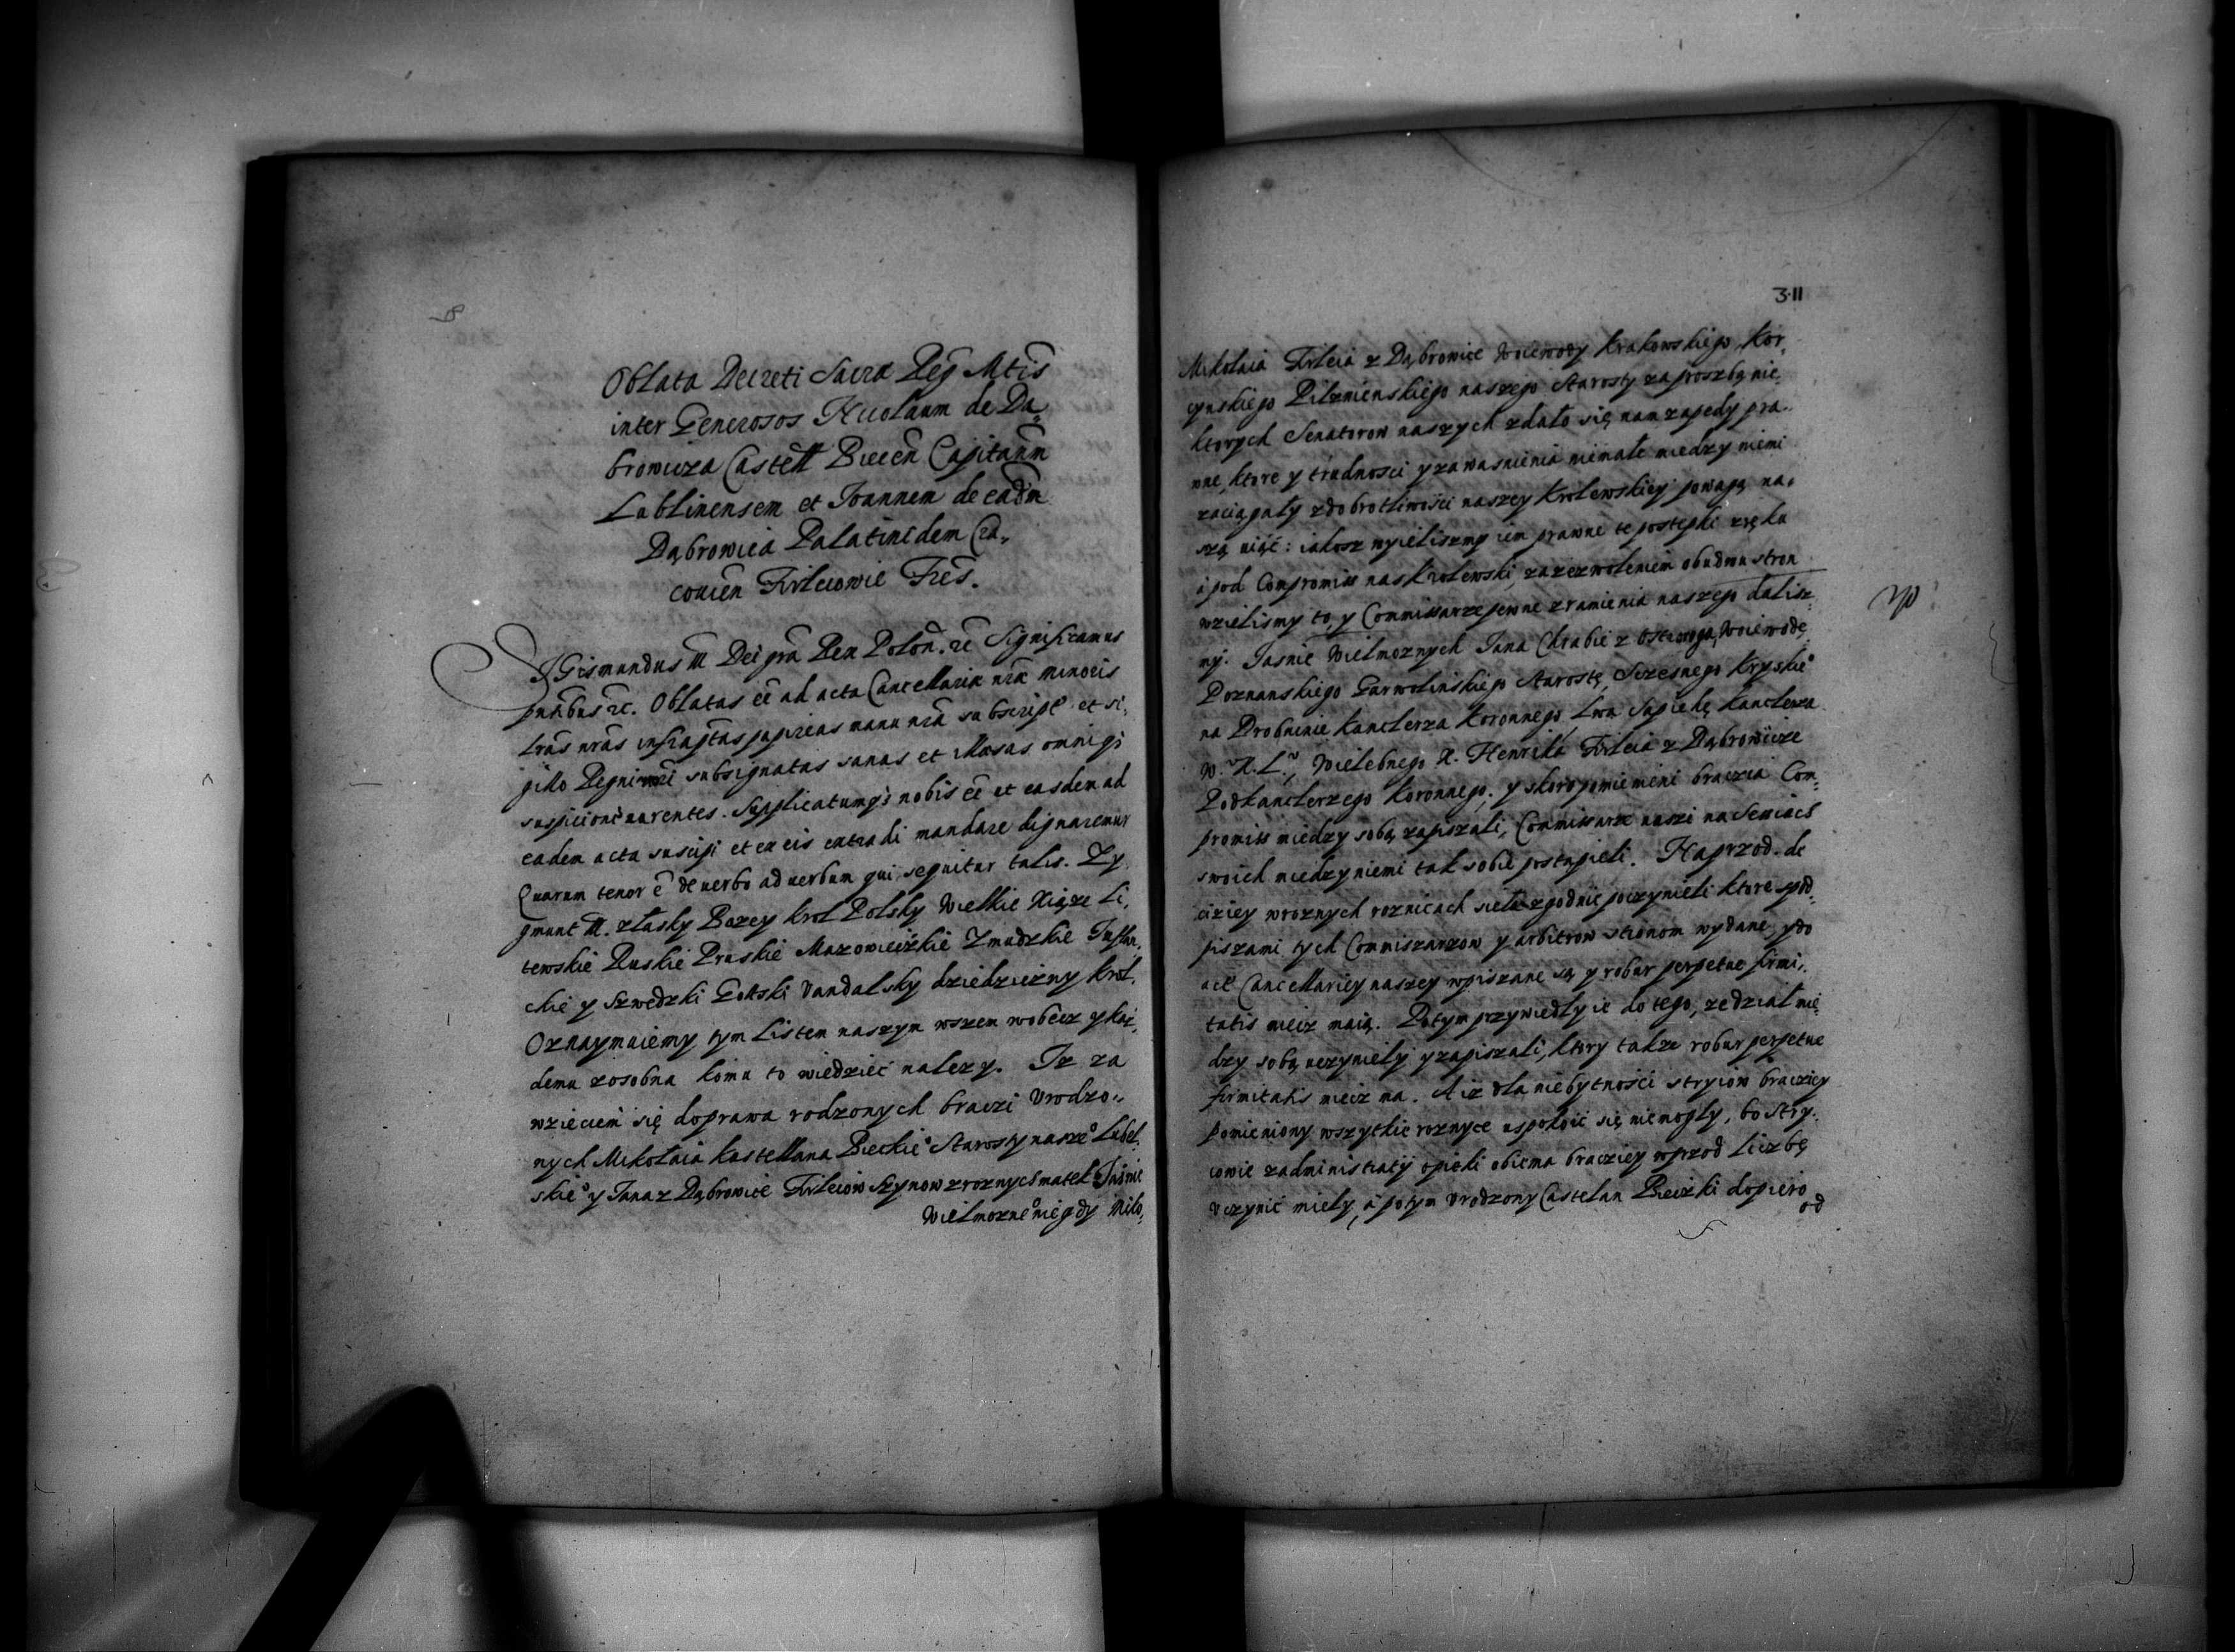 Oblata Decreti Sacræ Reg Mtis
inter Generosos Nicolaum de Dą
browicza Castell Biecen Capitanm
Lublinensem et Ioannem de eadm
Dąbrowica Palatinidem Cra,
couien Firleiowie Fres.
SIGismundus III Dei gra Rex Polon. rc Significamus
pntibus rc. Oblatas ee ad acta Cancellariæ nræ minoris
lras nras infraptas papireas manu nra subscript et si,
gillo Regni nri subsignatas sanas et illæsas omniqз
suspicione carentes. Supplicatumqз nobis ee et easdem ad
eadem acta suscipi et ex eis extradi mandare dignaremur
Quarum tenor e de uerbo ad uerbum qui sequitur talis. Zy
gmunt III. złasky Bozey krol Polsky Wielkie Xiąze Li,
tewskie Ruskie Pruskie Mazowieczkie Zmudzkie Inflan,
ckie y Szwedzki Gottski Vandalsky dziedziczny krol.
Oznaymuiemy tym Listem naszym wszem wobecz y kaz,
demu zosobna komu to wiedziec nalezy. Iz za
wzieciem się do prawa rodzonych braczi Vrodzo,,
nych Mikołaia kastellana Bieckie° Starosty nasze° Lubel,
skie° y Jana z Dąbrowice Firleiow Szynow zroznych matek Jaśnie
Wielmozne° niegdy Miko,
3.11
Mikolaia Firleia z Dąbrowice Woiewody Krakowskiego, Kor,
cynskiego Pilznienskiego naszego Starosty za proszbą nie,
ktorych Senatorow naszych zdało się nam zapedy pra,,
wne, ktore y trudnosci y zawasnienia niemałe miedzy niemi
zaciągały zdobrotliwości naszey krolewskiey powagą na,
szą uiąć: iakosz wzieliszmy iem prawne te postepki z ręku
i pod Compromiss nas krolewski, zazezwoleniem obudwu stron
wzielismy to, y Commissarze pewne z ramienia naszego dalisz,
my. Jasnie Wielmoznych Jana Chrabie z Ostroroga, Woiewodę
Poznanskiego Garwolinskiego Starostę, Sczesnego Kryskie°
na Drobninie kanclerza koronnego, Lwa Sapiehę kanclerza
W. X. L., Wielebnego X. Henrika Firleia z Dąbrowicze
Podkanclerzego koronnego, y skoro pomienieni braczia Com,
promiss miedzy sobą zapiszali, Commissarze naszi na Semiach
swoich miedzy niemi tak sobie postąpieli. Naprzod. de
ciziey wroznych roznicach sieła zgodnie poczynieli ktore spod,
piszami tych Commiszarzow y arbitrow stronom wydane, y do
act Cancellariey naszey wpiszane są y robur perpetue firmi,
tatis miecz maią. Potym przywiedły ie do tego, ze dział mię
dzy sobą uczyniely y zapiszali, ktory takze robur perpetue
firmitatis miecz ma. A iz dla niebytności stryiow bracziey
pomieniony wszytkie roznyce uspokoić się niemogły, bo stry,
iowie zadministratij opieki obiema bracziey wprzod Liczbę
Vczynić miely, á potym Vrodzony Castelan Bieczki dopiero
od